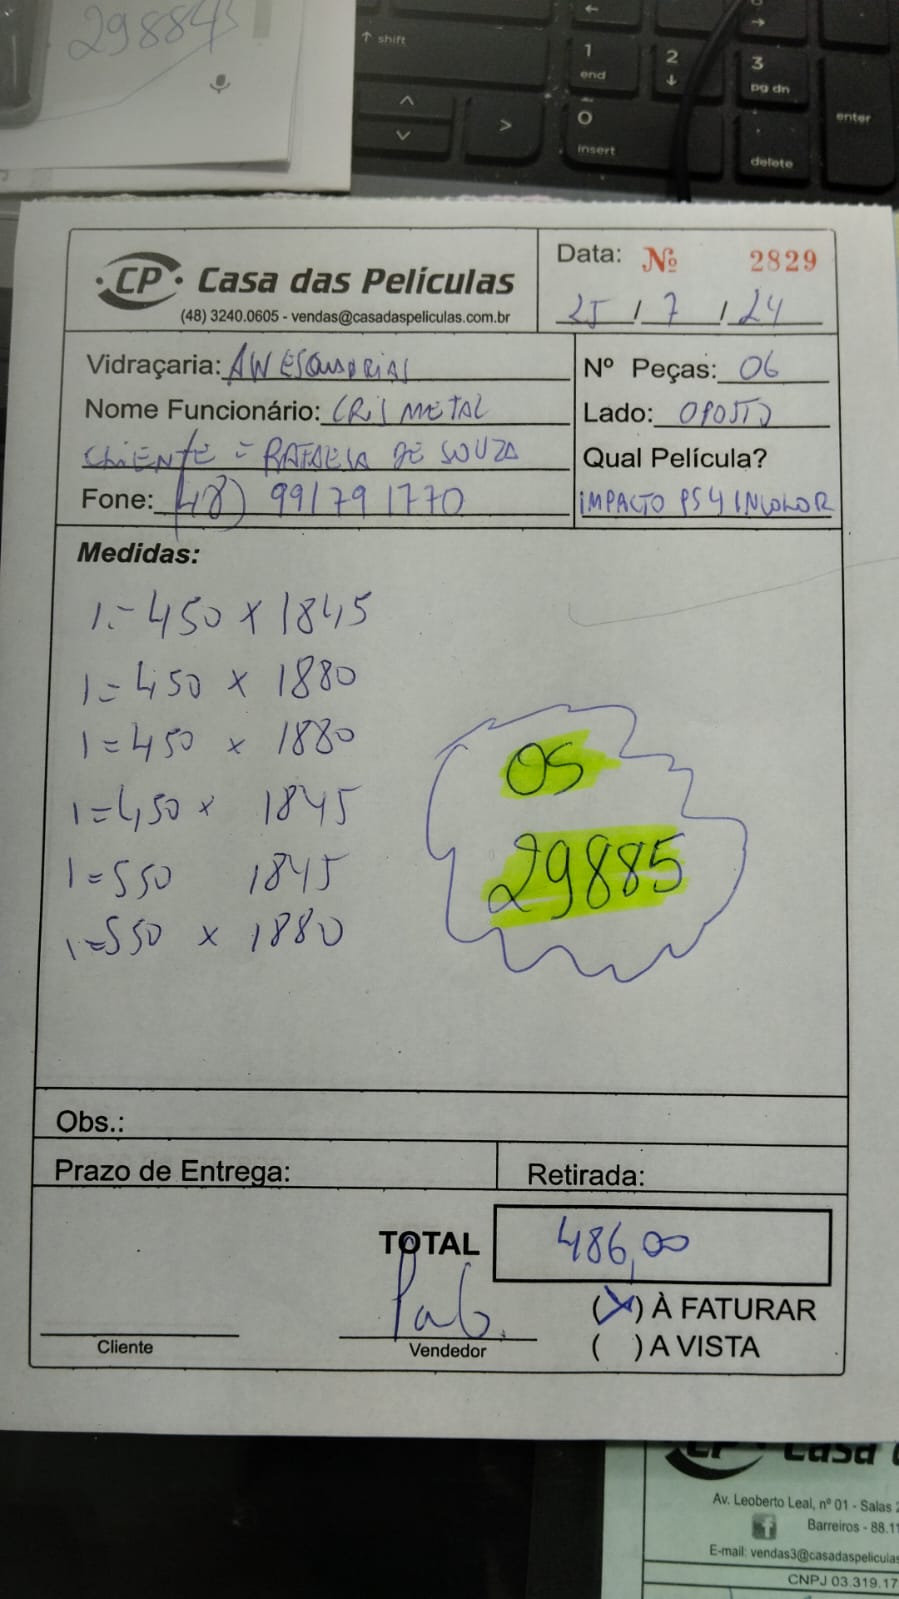 29884
↑ shift
1
end
2
↓
3
pg dn
→
←
0
insert
.
delete
enter
>
CP Casa das Películas
(48) 3240.0605 - vendas@casadaspeliculas.com.br
Data: Nº 2829
25 / 7 / 24
Vidraçaria: AW ESQUADRIAS
Nº Peças: 06
Nome Funcionário: CRIS METAL
Lado: OPOSTO
CLIENTE = RAFAELA DE SOUZA
Qual Película?
Fone: (48) 991791770
IMPACTO PS4 INCOLOR
Medidas:
1 = 450 x 1845
1 = 450 x 1880
1 = 450 x 1880
1 = 450 x 1845
1 = 550 1845
1 = 550 x 1880
OS
29885
Obs.:
Prazo de Entrega:
Retirada:
TOTAL 486,00
(X) À FATURAR
( ) A VISTA
Cliente
Vendedor
CP Casa
Av. Leoberto Leal, nº 01 - Salas
Barreiros - 88.11
E-mail: vendas3@casadaspeliculas
CNPJ 03.319.17